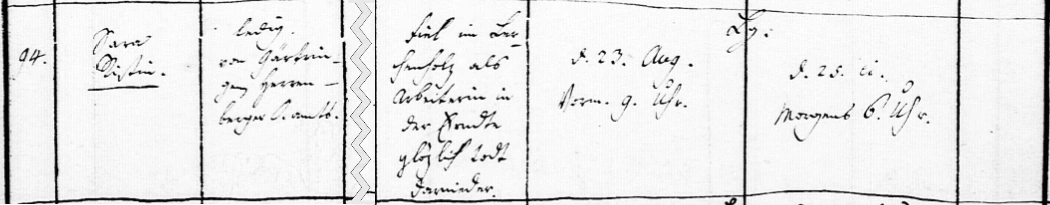 94.
Sara
Kistin.
ledig.
von Gärtrin-
gen Herren-
berger O. amts.
fiel im Ler-
chenholz als
Arbeiterin in
der Erndte
plözlich todt
darnieder.
d. 23. Aug.
Vorm. 9. Uhr.
d. 25. ei.
Morgens 6. Uhr.